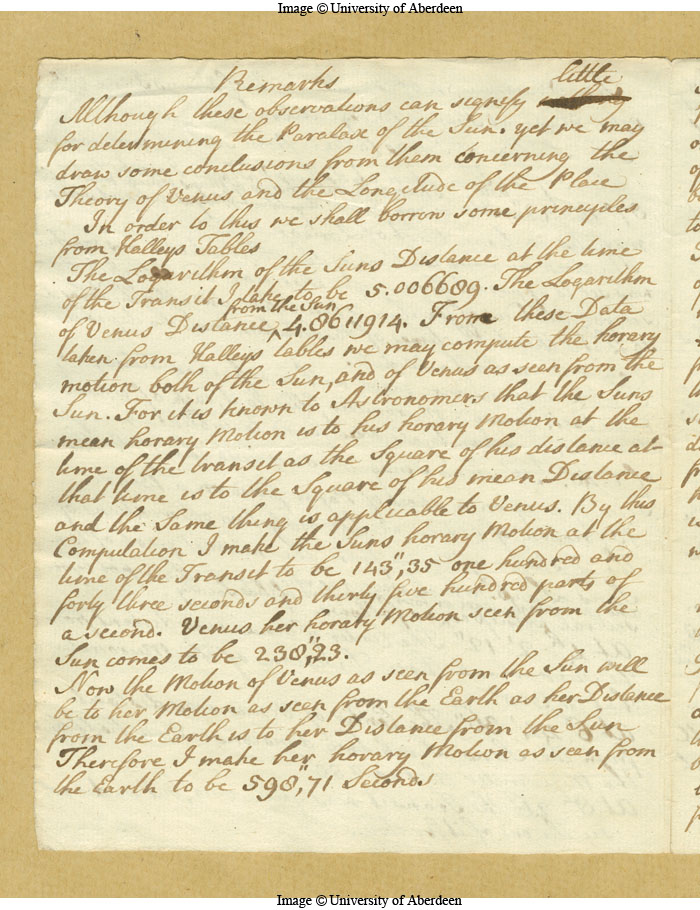 Image © University of Aberdeen
Remarks
Although these observations can signify little
for determining the Paralax of the Sun. yet we may
draw some conclusions from them concerning the
Theory of Venus and the Longitude of the Place
In order to this we shall borrow some principles
from Halleys Tables
The Logarithm of the Suns Distance at the time
of the Transit I take to be 5.006689. The Logarithm
of Venus Distance ^ from the Sun 4.8611914. From these Data
taken from Halleys tables we may compute the horary
motion both of the Sun, and of Venus as seen from the
Sun. For it is known to Astronomers that the Suns
mean horary Motion is to his horary Motion at the
time of the transit as the Square of his distance at
that time is to the Square of his mean Distance
and the Same thing is applicable to Venus. By this
Computation I make the Suns horary Motion at the
time of the Transit to be 143",35 one hundred and
forty three seconds and thirty five hundred parts of
a second. Venus her horary Motion seen from the
Sun comes to be 238",23.
Now the Motion of Venus as seen from the Sun will
be to her Motion as seen from the Earth as her Distance
from the Earth is to her Distance from the Sun
Therefore I make her horary Motion as seen from
the Earth to be 598",71 Seconds
Image © University of Aberdeen